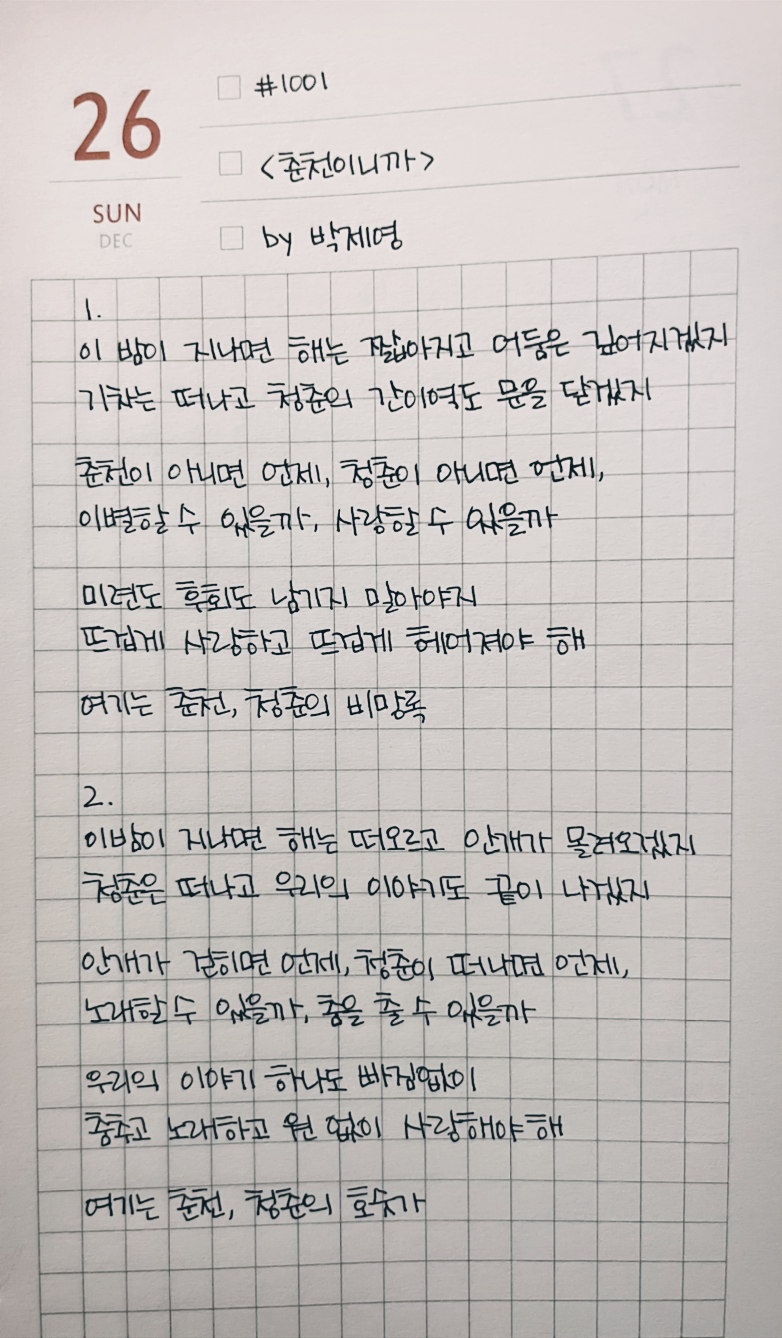 26
SUN
DEC
#1001
<춘천이니까>
by 박제영
1.
이 밤이 지나면 해는 짧아지고 어둠은 깊어지겠지
기차는 떠나고 청춘의 간이역도 문을 닫겠지
춘천이 아니면 언제, 청춘이 아니면 언제,
이별할 수 있을까, 사랑할 수 있을까
미련도 후회도 남기지 말아야지
뜨겁게 사랑하고 뜨겁게 헤어져야 해
여기는 춘천, 청춘의 비망록
2.
이 밤이 지나면 해는 떠오르고 안개가 몰려오겠지
청춘은 떠나고 우리의 이야기도 끝이 나겠지
안개가 걷히면 언제, 청춘이 떠나면 언제,
노래할 수 있을까, 춤을 출 수 있을까
우리의 이야기 하나도 빠짐없이
춤추고 노래하고 원 없이 사랑해야 해
여기는 춘천, 청춘의 호숫가